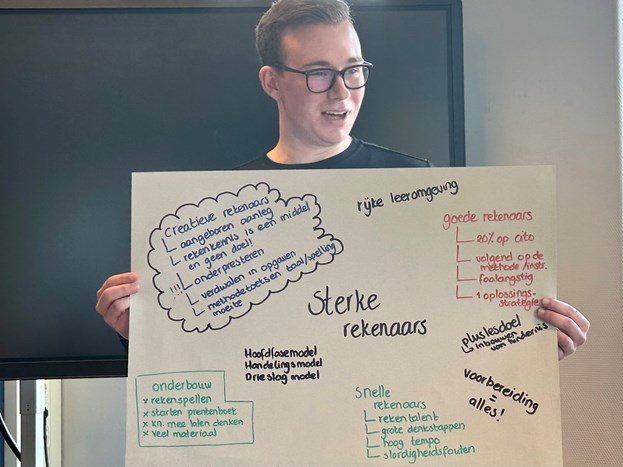 Creatieve rekenaars
aangeboren aanleg
rekenkennis is een middel
en geen doel!
!!! onderpresteren
verdwalen in opgaven
methodetoetsen taal/spelling
moeite
rijke leeromgeving
goede rekenaars
20% op cito
volgend op de
methode/instr.
faalangstig
1 oplossings-
strategie
Sterke
rekenaars
pluslesdoel
inbouwen
van hindernis
Hoofdfasemodel
Handelingsmodel
Drieslag model
voorbereiding
=
alles!
onderbouw
x rekenspellen
x starten prentenboek
x kn. mee laten denken
x veel materiaal
Snelle
rekenaars
rekentalent
grote denkstappen
hoog tempo
slordigheidsfouten